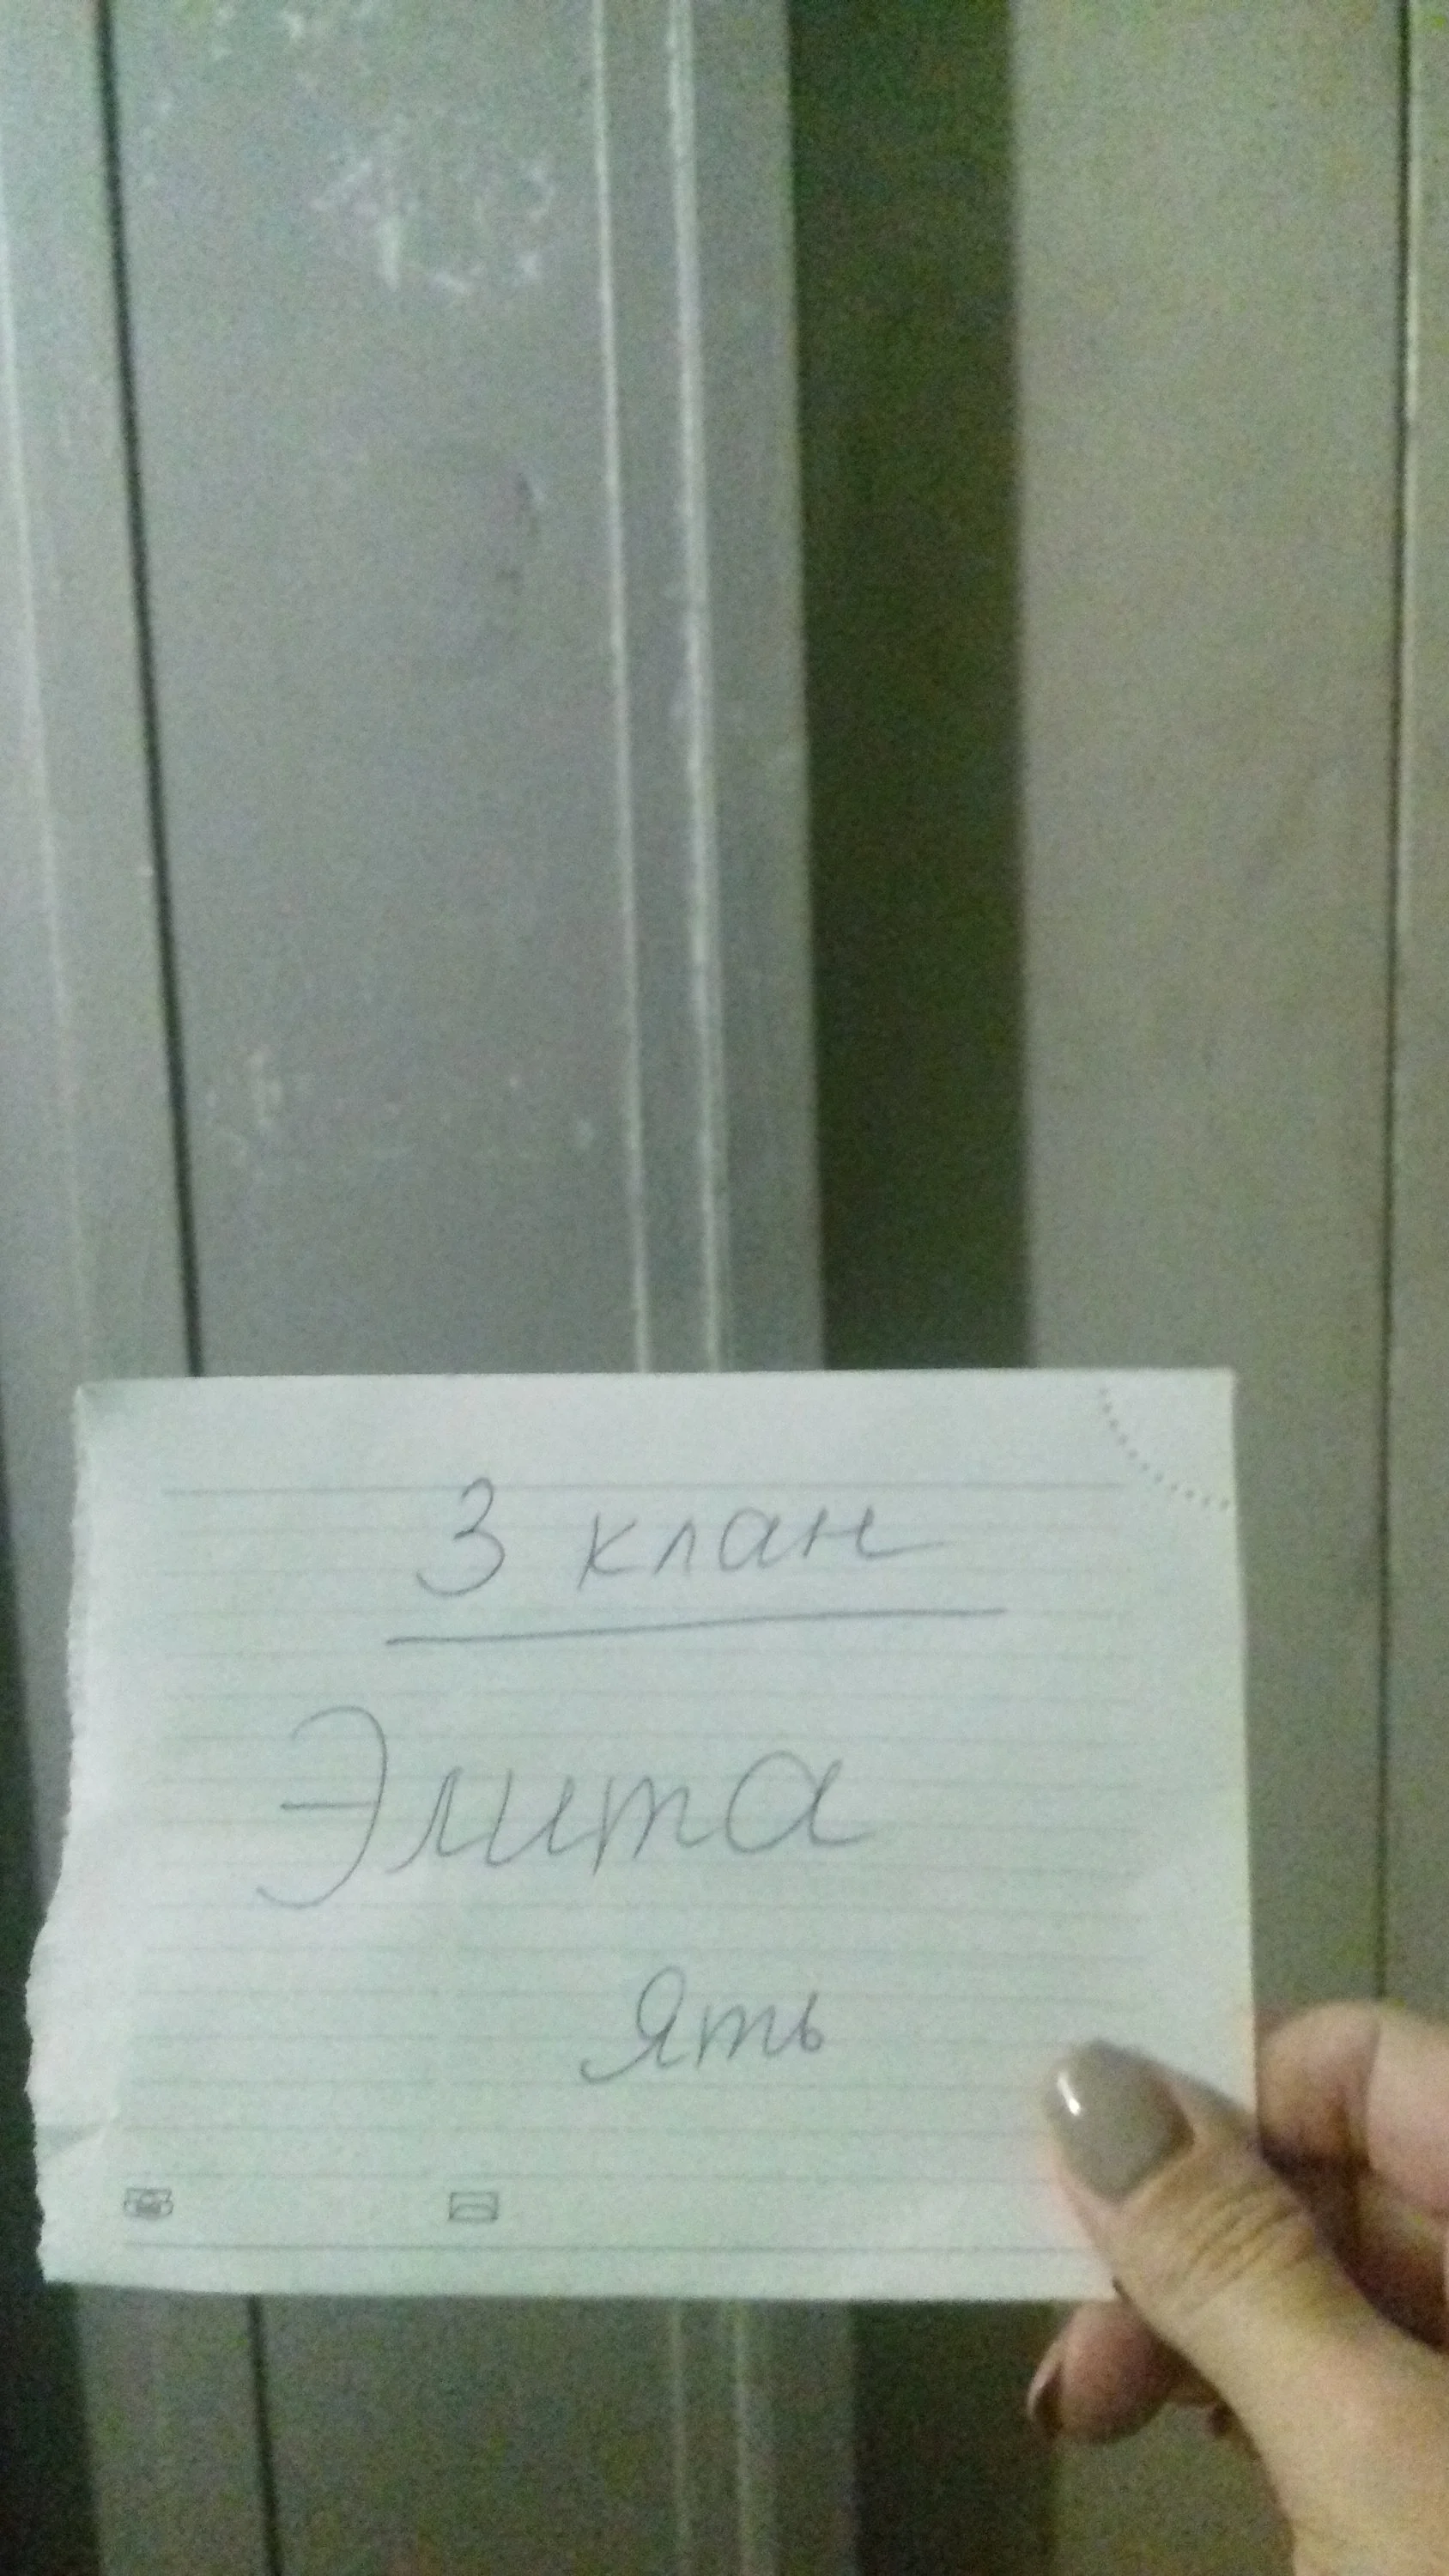 3 клан
Элита
Ять